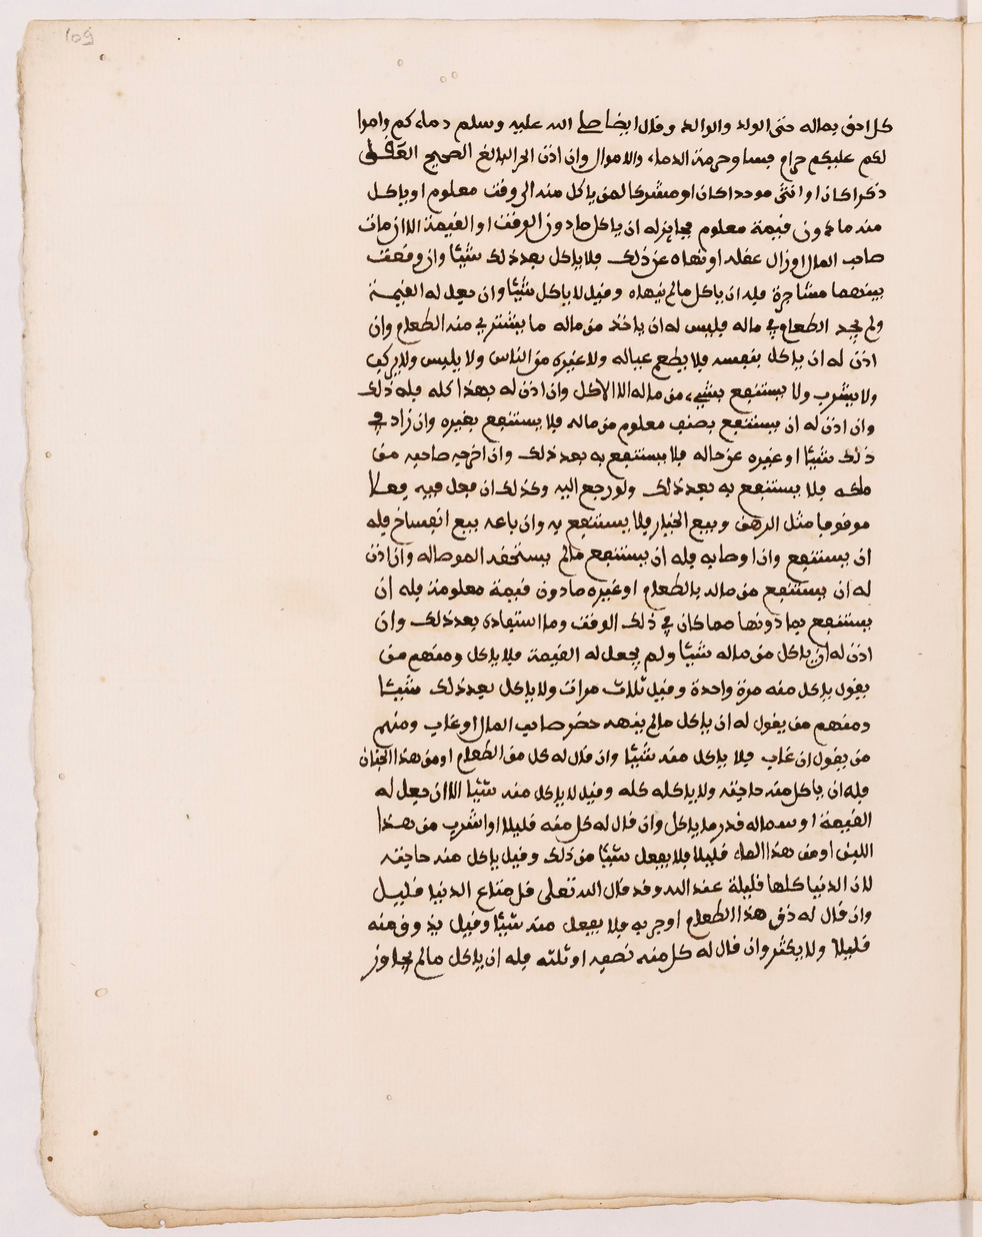 109
كل احق بماله حتى الولد والوالد وقال ايضا صلى الله عليه وسلم دماءكم واموا
لكم عليكم حرام فساوى حرمة الدماء والاموال وان اذن الحر البالغ الصحيح العقل
ذكرا كان او انثى موحدا كان او مشركا لمن ياكل منه الى وقت معلوم او ياكل
منه ما دون قيمة معلوم فجايز له ان ياكل ما دون الوقت او القيمة الا ان مات
صاحب المال او زال عقله او نهاه عن ذلك فلا ياكل بعد ذلك شيئا وان وقعت
بينهما مشاجرة فله ان ياكل ما لم ينهاه وقيل لا ياكل شيئا وان جعل له القيمة
ولم يجد الطعام في ماله فليس له ان ياخذ من ماله ما يشتري منه الطعام وان
اذن له ان ياكل بنفسه فلا يطعم عياله ولا غيره من الناس ولا يلبس ولا يركب
ولا يشرب ولا يستنفع بشيء من ماله الا الاكل وان اذن له بهذا كله فله ذلك
وان اذن له ان يستنفع بصنف معلوم من ماله فلا يستنفع بغيره وان زاد في
ذلك شيئا او غيره عن حاله فلا يستنفع به بعد ذلك وان اخرجه صاحبه من
ملكه فلا يستنفع به بعد ذلك ولو رجع اليه وكذلك ان فعل فيه فعلا
موقوفا مثل الرهن وبيع الخيار فلا يستنفع به وان باعه بيع انفساخ فله
ان يستنفع وان اوصا به فله ان يستنفع ما لم يستحقه الموصا له وان اذن
له ان يستنفع من ماله بالطعام او غيره ما دون قيمة معلومة فله ان
يستنفع بما دونها مما كان في ذلك الوقت وما استفاده بعد ذلك وان
اذن له ان ياكل من ماله شيئا ولم يجعل له القيمة فلا ياكل ومنهم من
يقول ياكل منه مرة واحدة وقيل ثلاث مرات ولا ياكل بعد ذلك شيئا
ومنهم من يقول له ان ياكل ما لم ينهه حضر صاحب المال او غاب ومنهم
من يقول ان غاب فلا ياكل منه شيئا وان قال له كل من الطعام او من هذا الجنان
فله ان ياكل منه حاجته ولا ياكله كله وقيل لا ياكل منه شيئا الا ان جعل له
القيمة او سما له قدر ما ياكل وان قال له كل منه قليلا او اشرب من هذا
اللبن او من هذا الماء قليلا فلا يفعل شيئا من ذلك وقيل ياكل منه حاجته
لان الدنيا كلها قليلة عند الله وقد قال الله تعلى قل متاع الدنيا قليل
وان قال له ذق هذا الطعام او جربه فلا يفعل منه شيئا وقيل يذوق منه
قليلا ولا يكثر وان قال له كل منه نصفه او ثلثه فله ان ياكل ما لم يجاوز